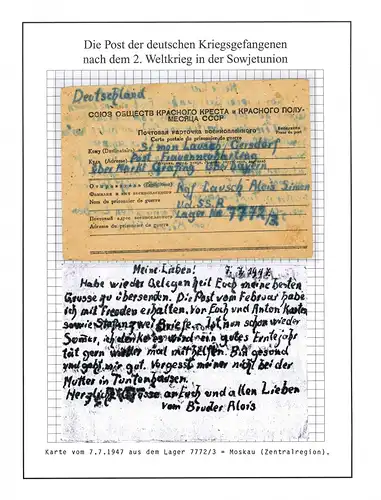 Die Post der deutschen Kriegsgefangenen
nach dem 2. Weltkrieg in der Sowjetunion
Deutschland
СОЮЗ ОБЩЕСТВ КРАСНОГО КРЕСТА и КРАСНОГО ПОЛУ-
МЕСЯЦА СССР
Почтовая карточка военнопленного
Carte postale du prisonnier de guerre
Кому (Destinataire) Simon Lausch, Gersdorf
Куда (Adresse) Post Frauenneuharting
über Markt Grafing Oberbayern
Отправитель (Expéditeur)
Фамилия и имя военнопленного Kgf Lausch Alois Simon
Nom du prisonnier de guerre
Ud.SS.R
Почтовый адрес военнопленного Lager No 7772/3
Adresse du prisonnier de guerre
Meine Lieben! 7.7.1947
Habe wieder Gelegenheit Euch meine besten
Grüsse zu übersenden. Die Post vom Februar habe
ich mit Freuden erhalten. Vor Euch und Anton Karten
sowie Stefan zwei Briefe. Ist nun schon wieder
Somer, ich denke es wird ein gutes Erntejahr
tät gern wieder mal mithelfen. Bin gesund
und geht mir gut. Vergesst meiner nicht bei der
Mutter in Tuntenhausen.
Herzliche Grüsse an Euch und allen Lieben
vom Bruder Alois
Karte vom 7.7.1947 aus dem Lager 7772/3 = Moskau (Zentralregion).